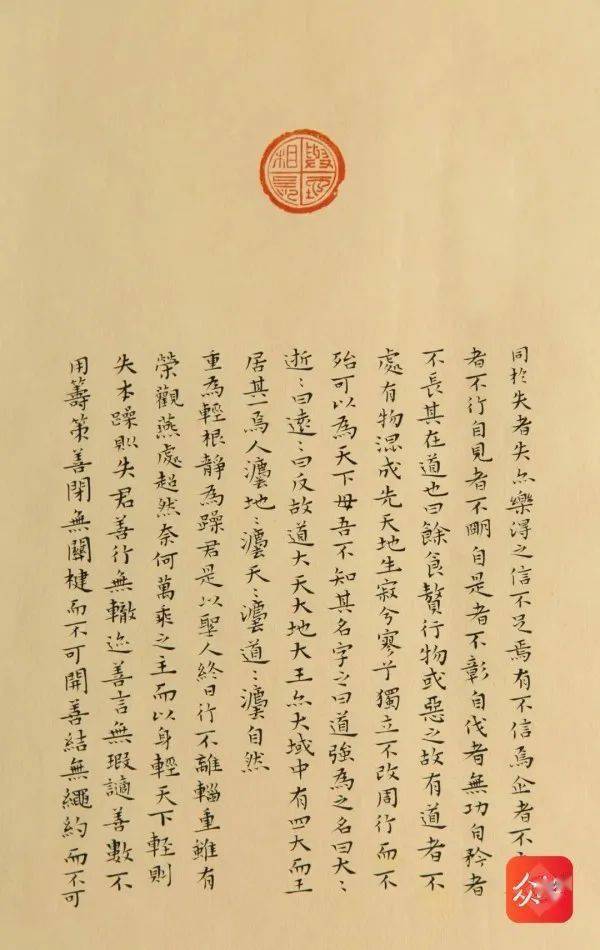 同於失者失亦樂淂之信不足焉有不信焉企者不
者不行自見者不明自是者不彰自伐者無功自矜者
不長其在道也曰餘食贅行物或惡之故有道者不
處有物混成先天地生寂兮寥乎獨立不改周行而不
殆可以為天下母吾不知其名字之曰道強為之名曰大〻
逝〻曰遠〻曰反故道大天大地大王亦大域中有四大而王
居其一焉人灋地〻灋天〻灋道〻灋自然
重為輕根靜為躁君是以聖人終日行不離輜重雖有
榮觀燕處超然奈何萬乘之主而以身輕天下輕則
失本躁則失君善行無轍迹善言無瑕讁善數不
用籌策善閉無關楗而不可開善結無繩約而不可
众